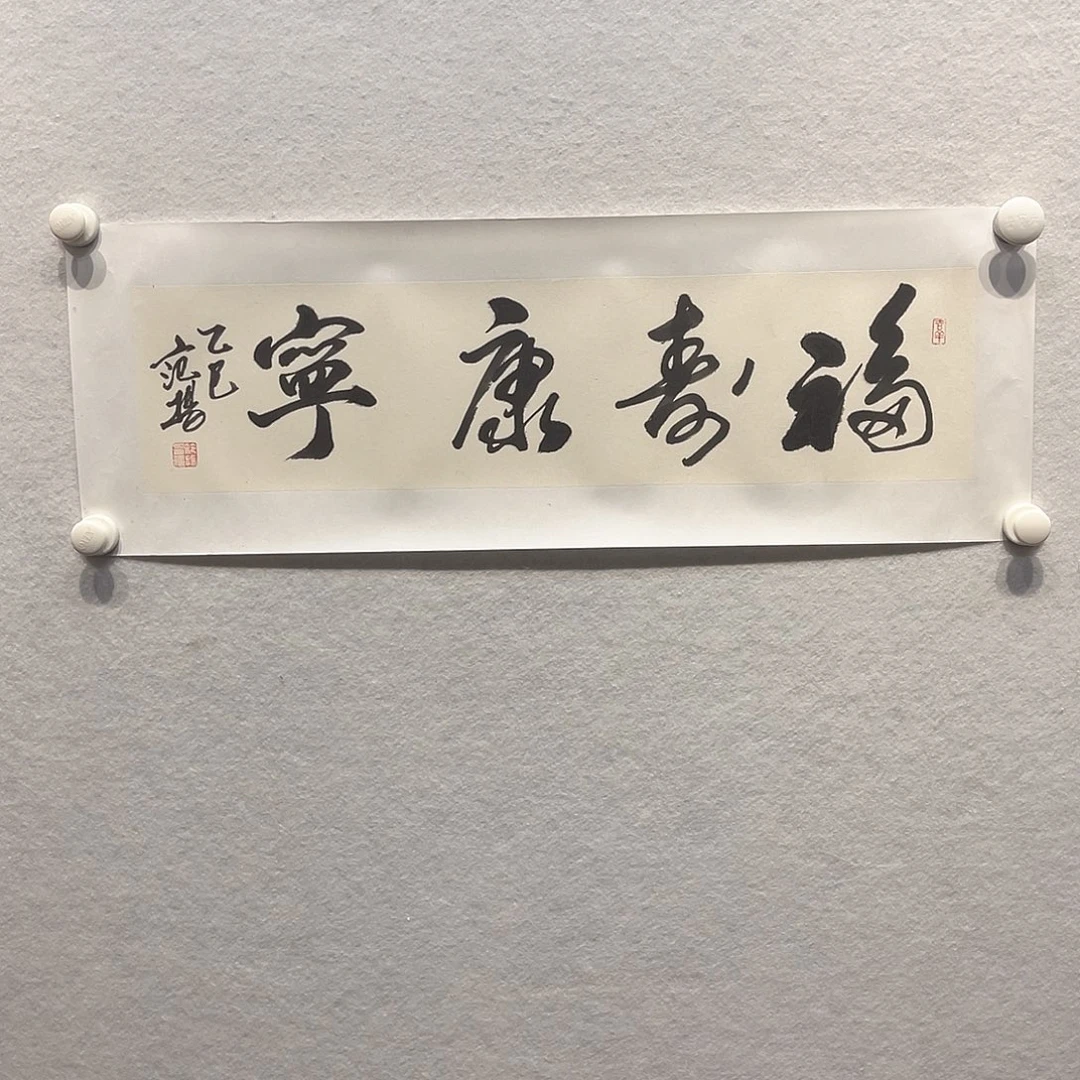 福壽康寧
乙巳
范揚